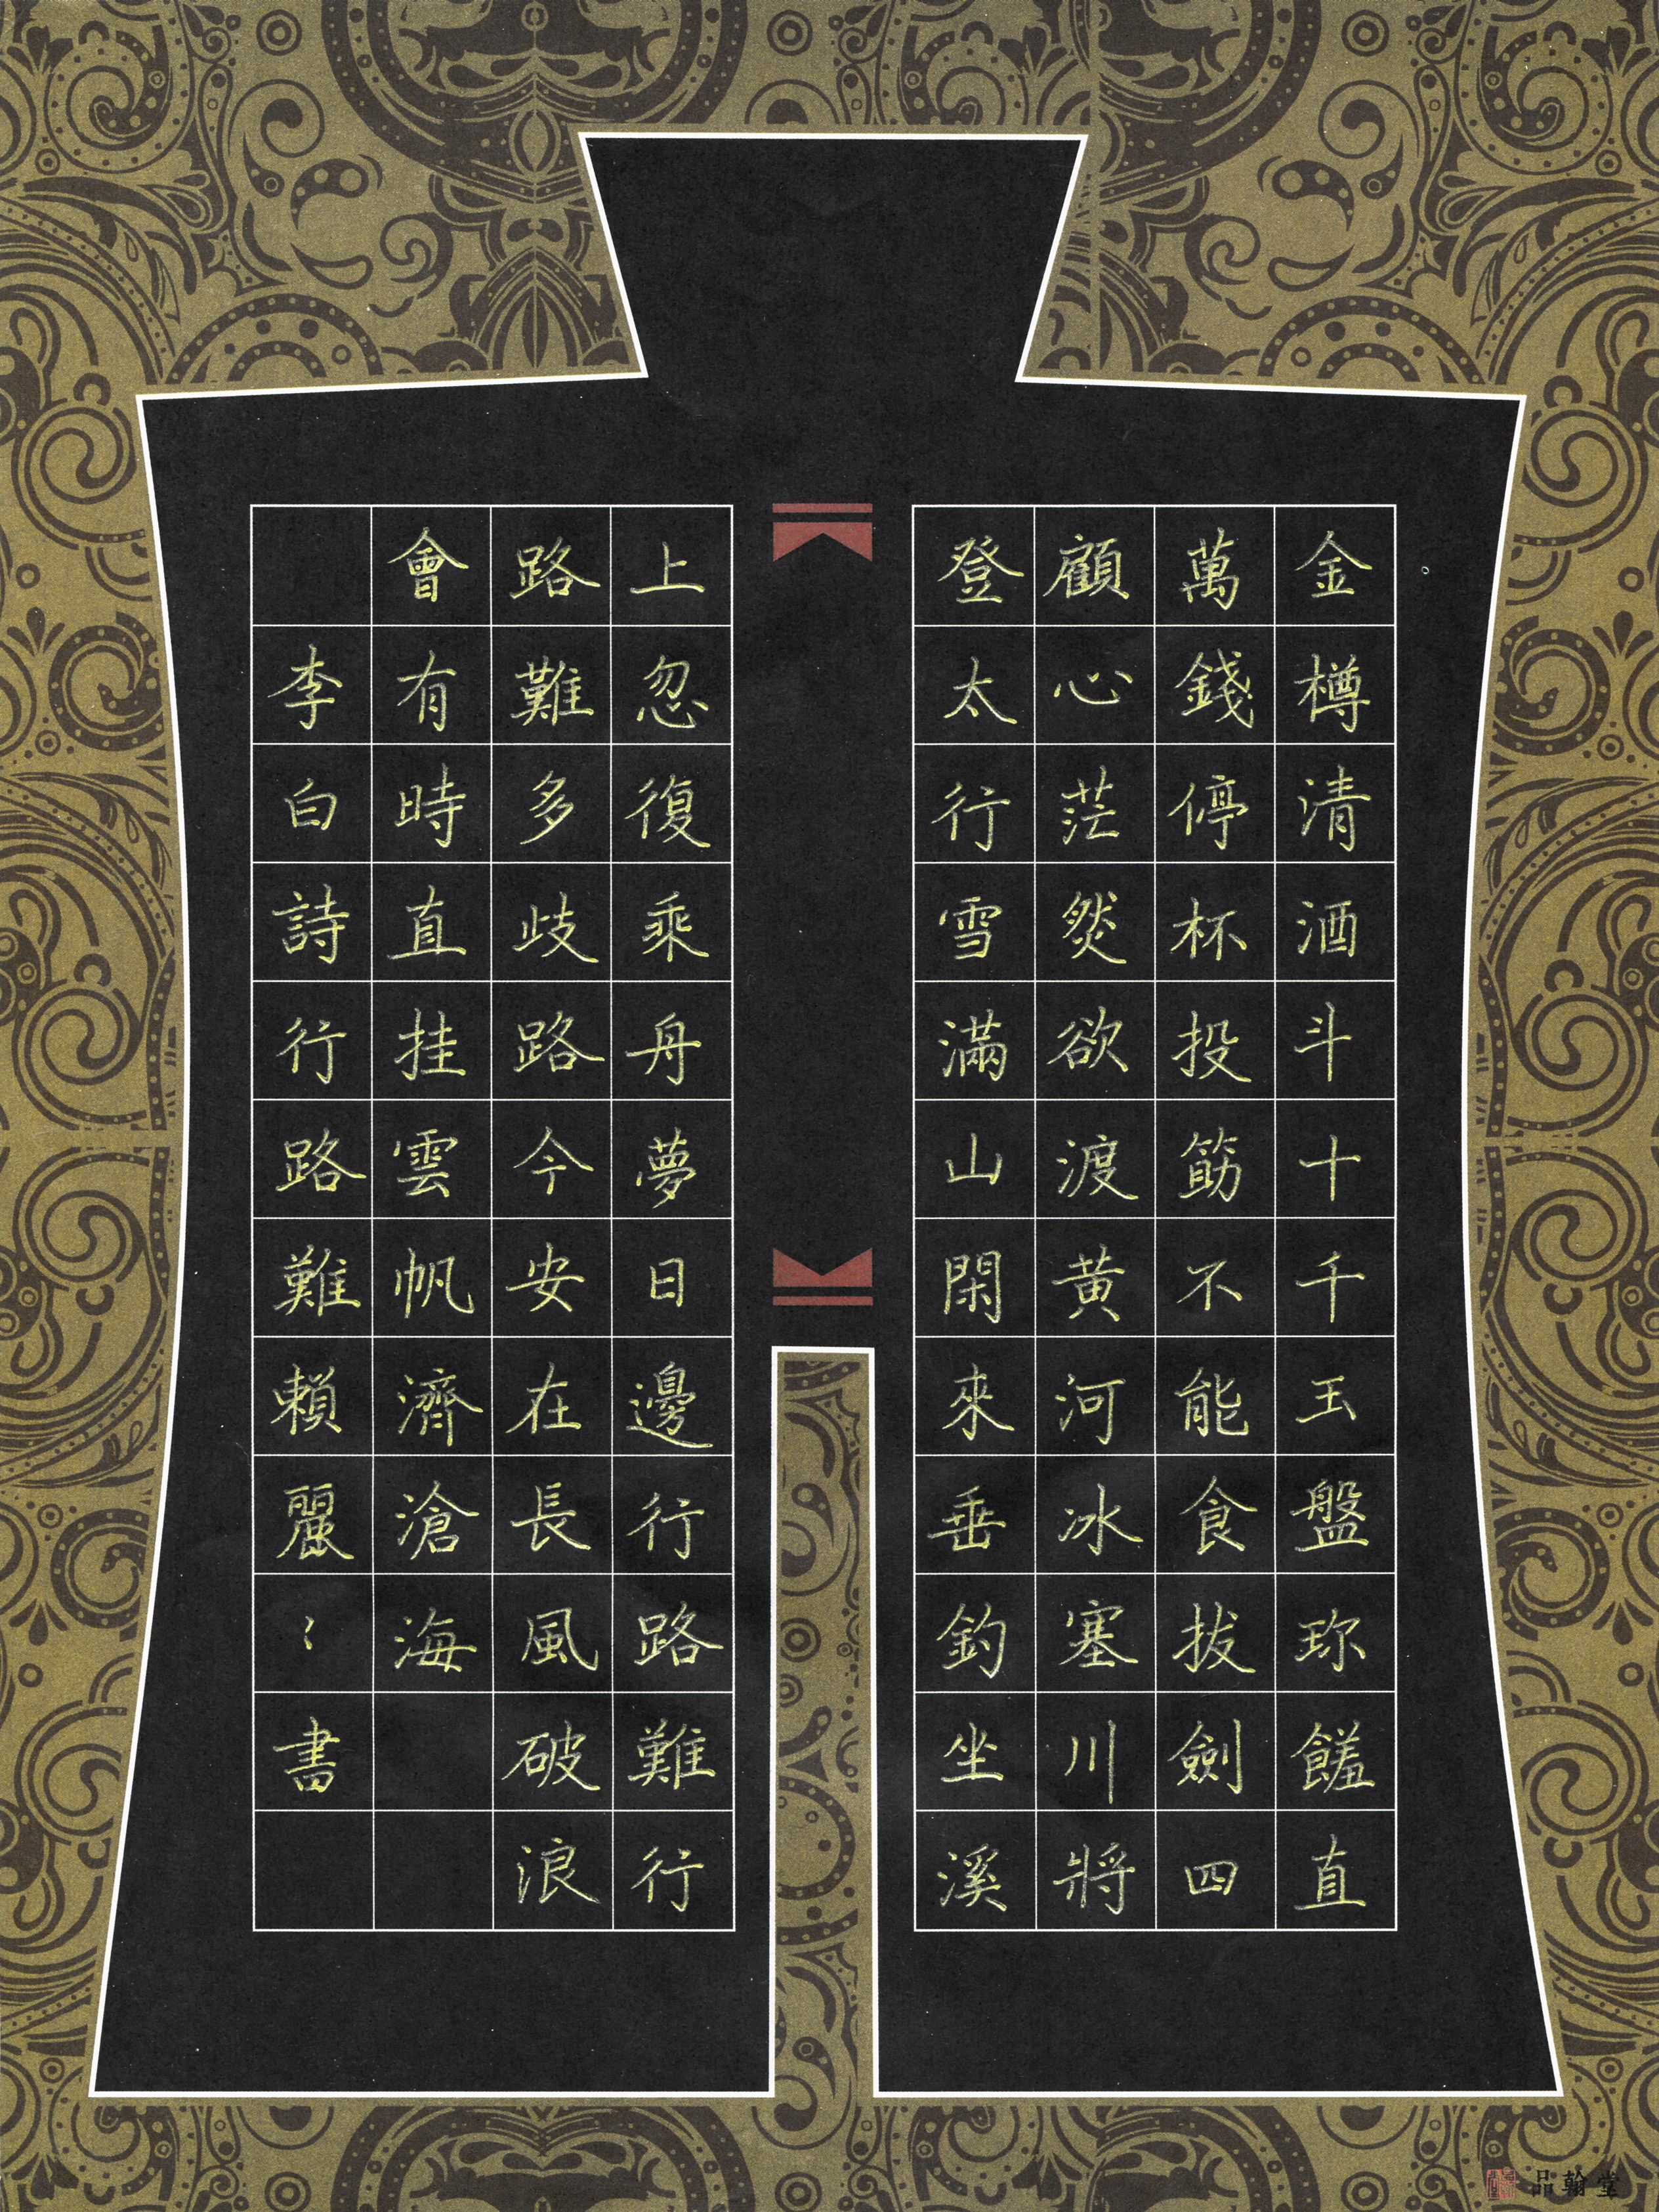 金樽清酒斗十千玉盤珎饈直
萬錢停杯投筯不能食拔劍四
顧心茫然欲渡黄河冰塞川將
登太行雪滿山閑來垂釣坐溪
上忽復乘舟夢日邊行路難行
路難多歧路今安在長風破浪
會有時直挂雲帆濟滄海
李白詩行路難賴麗〻書
品翰堂